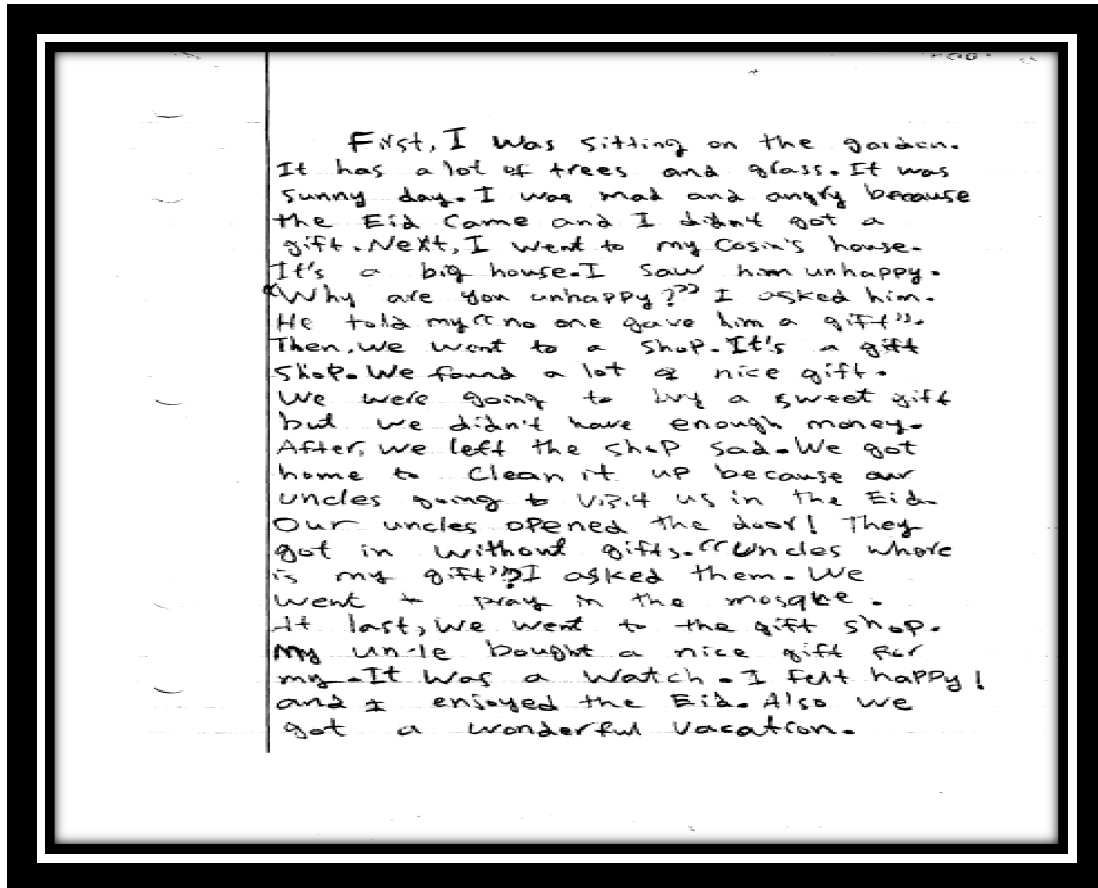 First, I was sitting on the garden.
It has a lot of trees and glass. It was
sunny day. I was mad and angry because
the Eid came and I didn't got a
gift. Next, I went to my cosin's house.
It's a big house. I saw him unhappy.
"Why are you unhappy?" I asked him.
He told my "no one gave him a gift".
Then, we went to a shop. It's a gift
shop. We found a lot of nice gift.
We were going to buy a sweet gift
but we didn't have enough money.
After, we left the shop sad. We got
home to clean it up because our
uncles going to visit us in the Eid.
Our uncles opened the door! They
got in without gifts. "Uncles where
is my gift"? I asked them. We
went to pray in the mosqke.
At last, we went to the gift shop.
My uncle bought a nice gift for
my. It was a watch. I felt happy!
and I enjoyed the Eid. Also we
got a wonderful vacation.